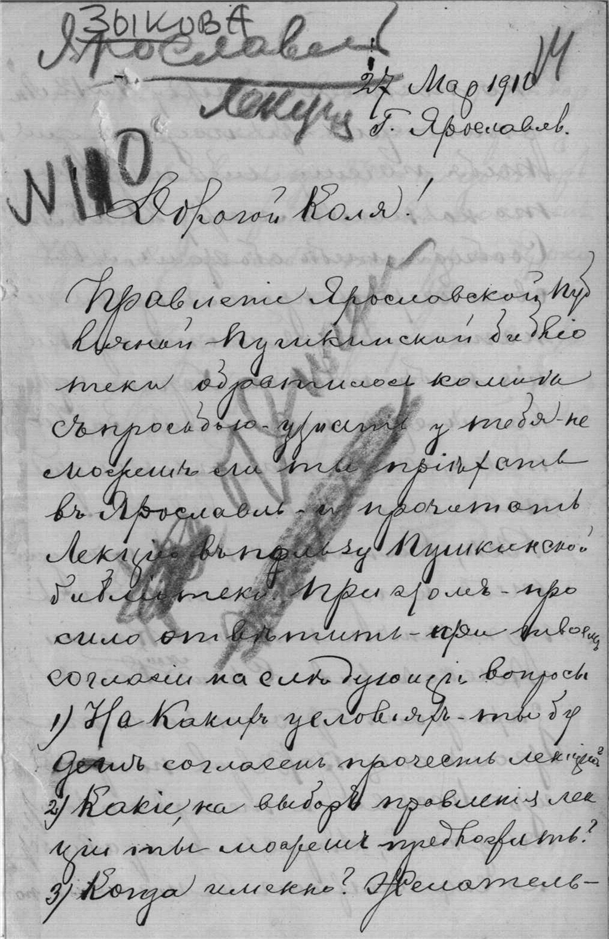 ЗЫКОВА
Ярославль
Лекция
14
27 Мар 1910
Г. Ярославль.
N 110
Дорогой Коля!
Правленіе Ярославской Пуб
личной Пушкинской библіо
теки обратилось ко мнѣ
съ просьбою - узнать у тебя - не
можешь ли ты пріѣхать
въ Ярославль - и прочитать
Лекцію въ пользу Пушкинской
библіотеки. При этомъ - про
сило отвѣтить - при твоемъ
согласіи на слѣдующіе вопросы
1) На какихъ условіяхъ - ты бу
дешь согласенъ прочесть лекцію?
2) Какіе, на выборъ правленія лек
ціи ты можешь предложить?
3) Когда именно? Желатель-